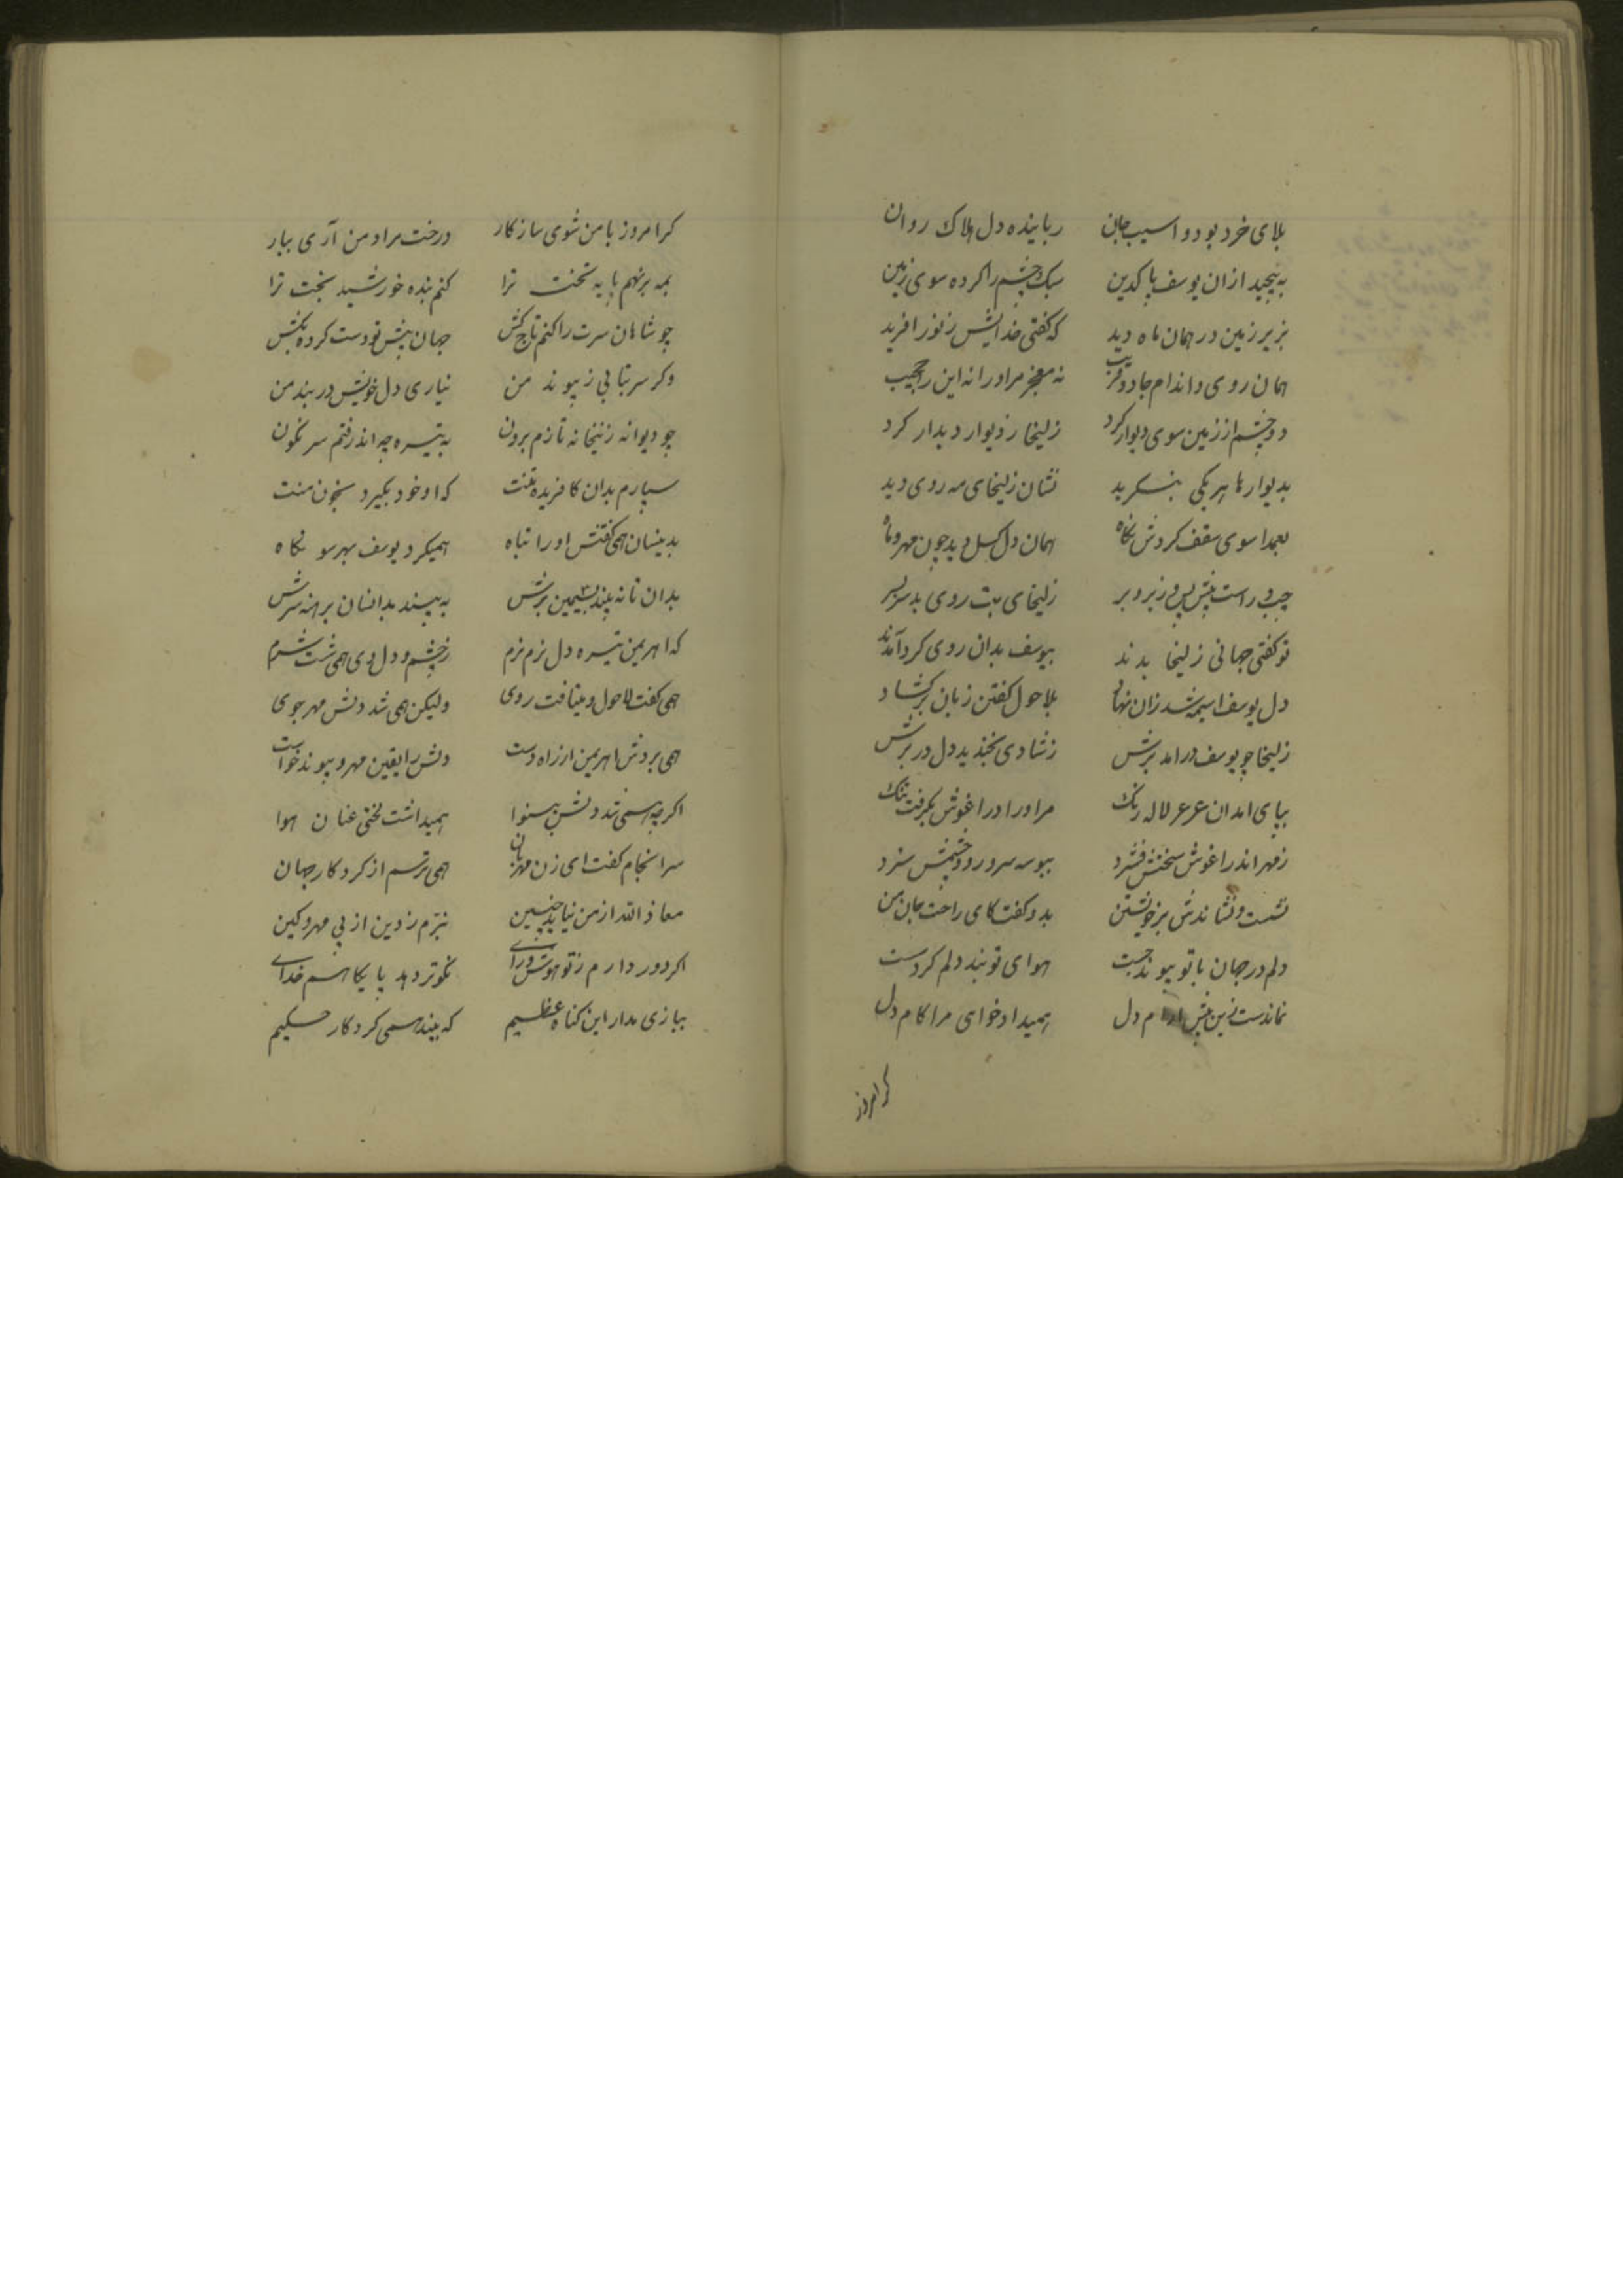 بلای خرد بود و اسیب جان ربابنده دل هلاک روان
به پیچید ازان یوسف پاکدین سبک چشم را کرده سوی زمین
بزیر زمین در همان ماه دید که کفتی خدایش ز نور افرید
همان روی و اندام جادو فریب نه معجز مر اورا نه این را حجیب
دو چشم از زمین سوی دیوار کرد زلیخا ز دیوار دیدار کرد
بدیوارها هر یکی بنکرید نشان زلیخای مه روی دید
بعمدا سوی سقف کردش نکاه همان دل کسل دید چون مهر و ماه
چپ و راست پیش و پس و زیر و بر زلیخای بت روی بد سربسر
تو کفتی جهانی زلیخا بدند بیوسف بدان روی کرد آمدند
دل یوسف اسیمه شد زان نهاد بلا حول کفتن زبان برکشاد
زلیخا چو یوسف درامد برش ز شادی بخندید دل در برش
بپای امد ان عرعر لاله رنک مر اورا در اغوش بکرفت تنک
ز مهر اندر اغوش سختش فشرد ببوسه سر و رو و چشمش سترد
نشست و نشاندش بر خویشتن بدو کفت کای راحت جان من
دلم در جهان با تو پیوند جست هوای تو بند دلم کرد سست
نماندست زین پیش ارام دل همی داد خواهی مرا کام دل
کر امروز
کر امروز با من شوی سازکار درخت مراد من آری ببار
بمه برنهم پایه تخت ترا کنم بنده خورشید بخت ترا
چو شاهان سرت را کنم تاج کش جهان پیش تو دست کرده بکش
وکر سر بتابی ز پیوند من نیاری دل خویش در بند من
چو دیوانه زین خانه تازم برون به تیره چه اندر فتم سرنکون
سپارم بدان کافریده تنت که او خود بکیرد بخون منت
بدینسان همی کفتش اورا تباه همیکرد یوسف بهر سو نکاه
بدان تا نه بیند بسیمین برش به بیند بدانسان برهنه سرش
که اهریمن تیره دل نرم نرم ز چشم و دل وی همی شست شرم
همی کفت لاحول و میتافت روی ولیکن همی شد دلش مهرجوی
همی بردش اهریمن از راه دست دلش را بقین مهر و پیوند خواست
اکرچه همی شد دلش بینوا همیداشت لختی عنان هوا
سرانجام کفت ای زن مهربان همی ترسم از کردکار جهان
معاذ الله از من نیاید چنین نبرم ز دین از پی مهر و کین
اکر دور دارم ز تو هوش و رای نکوتر دهد پایکاهم خدای
ببازی مدار این کناه عظیم که بیند همی کردکار حکیم